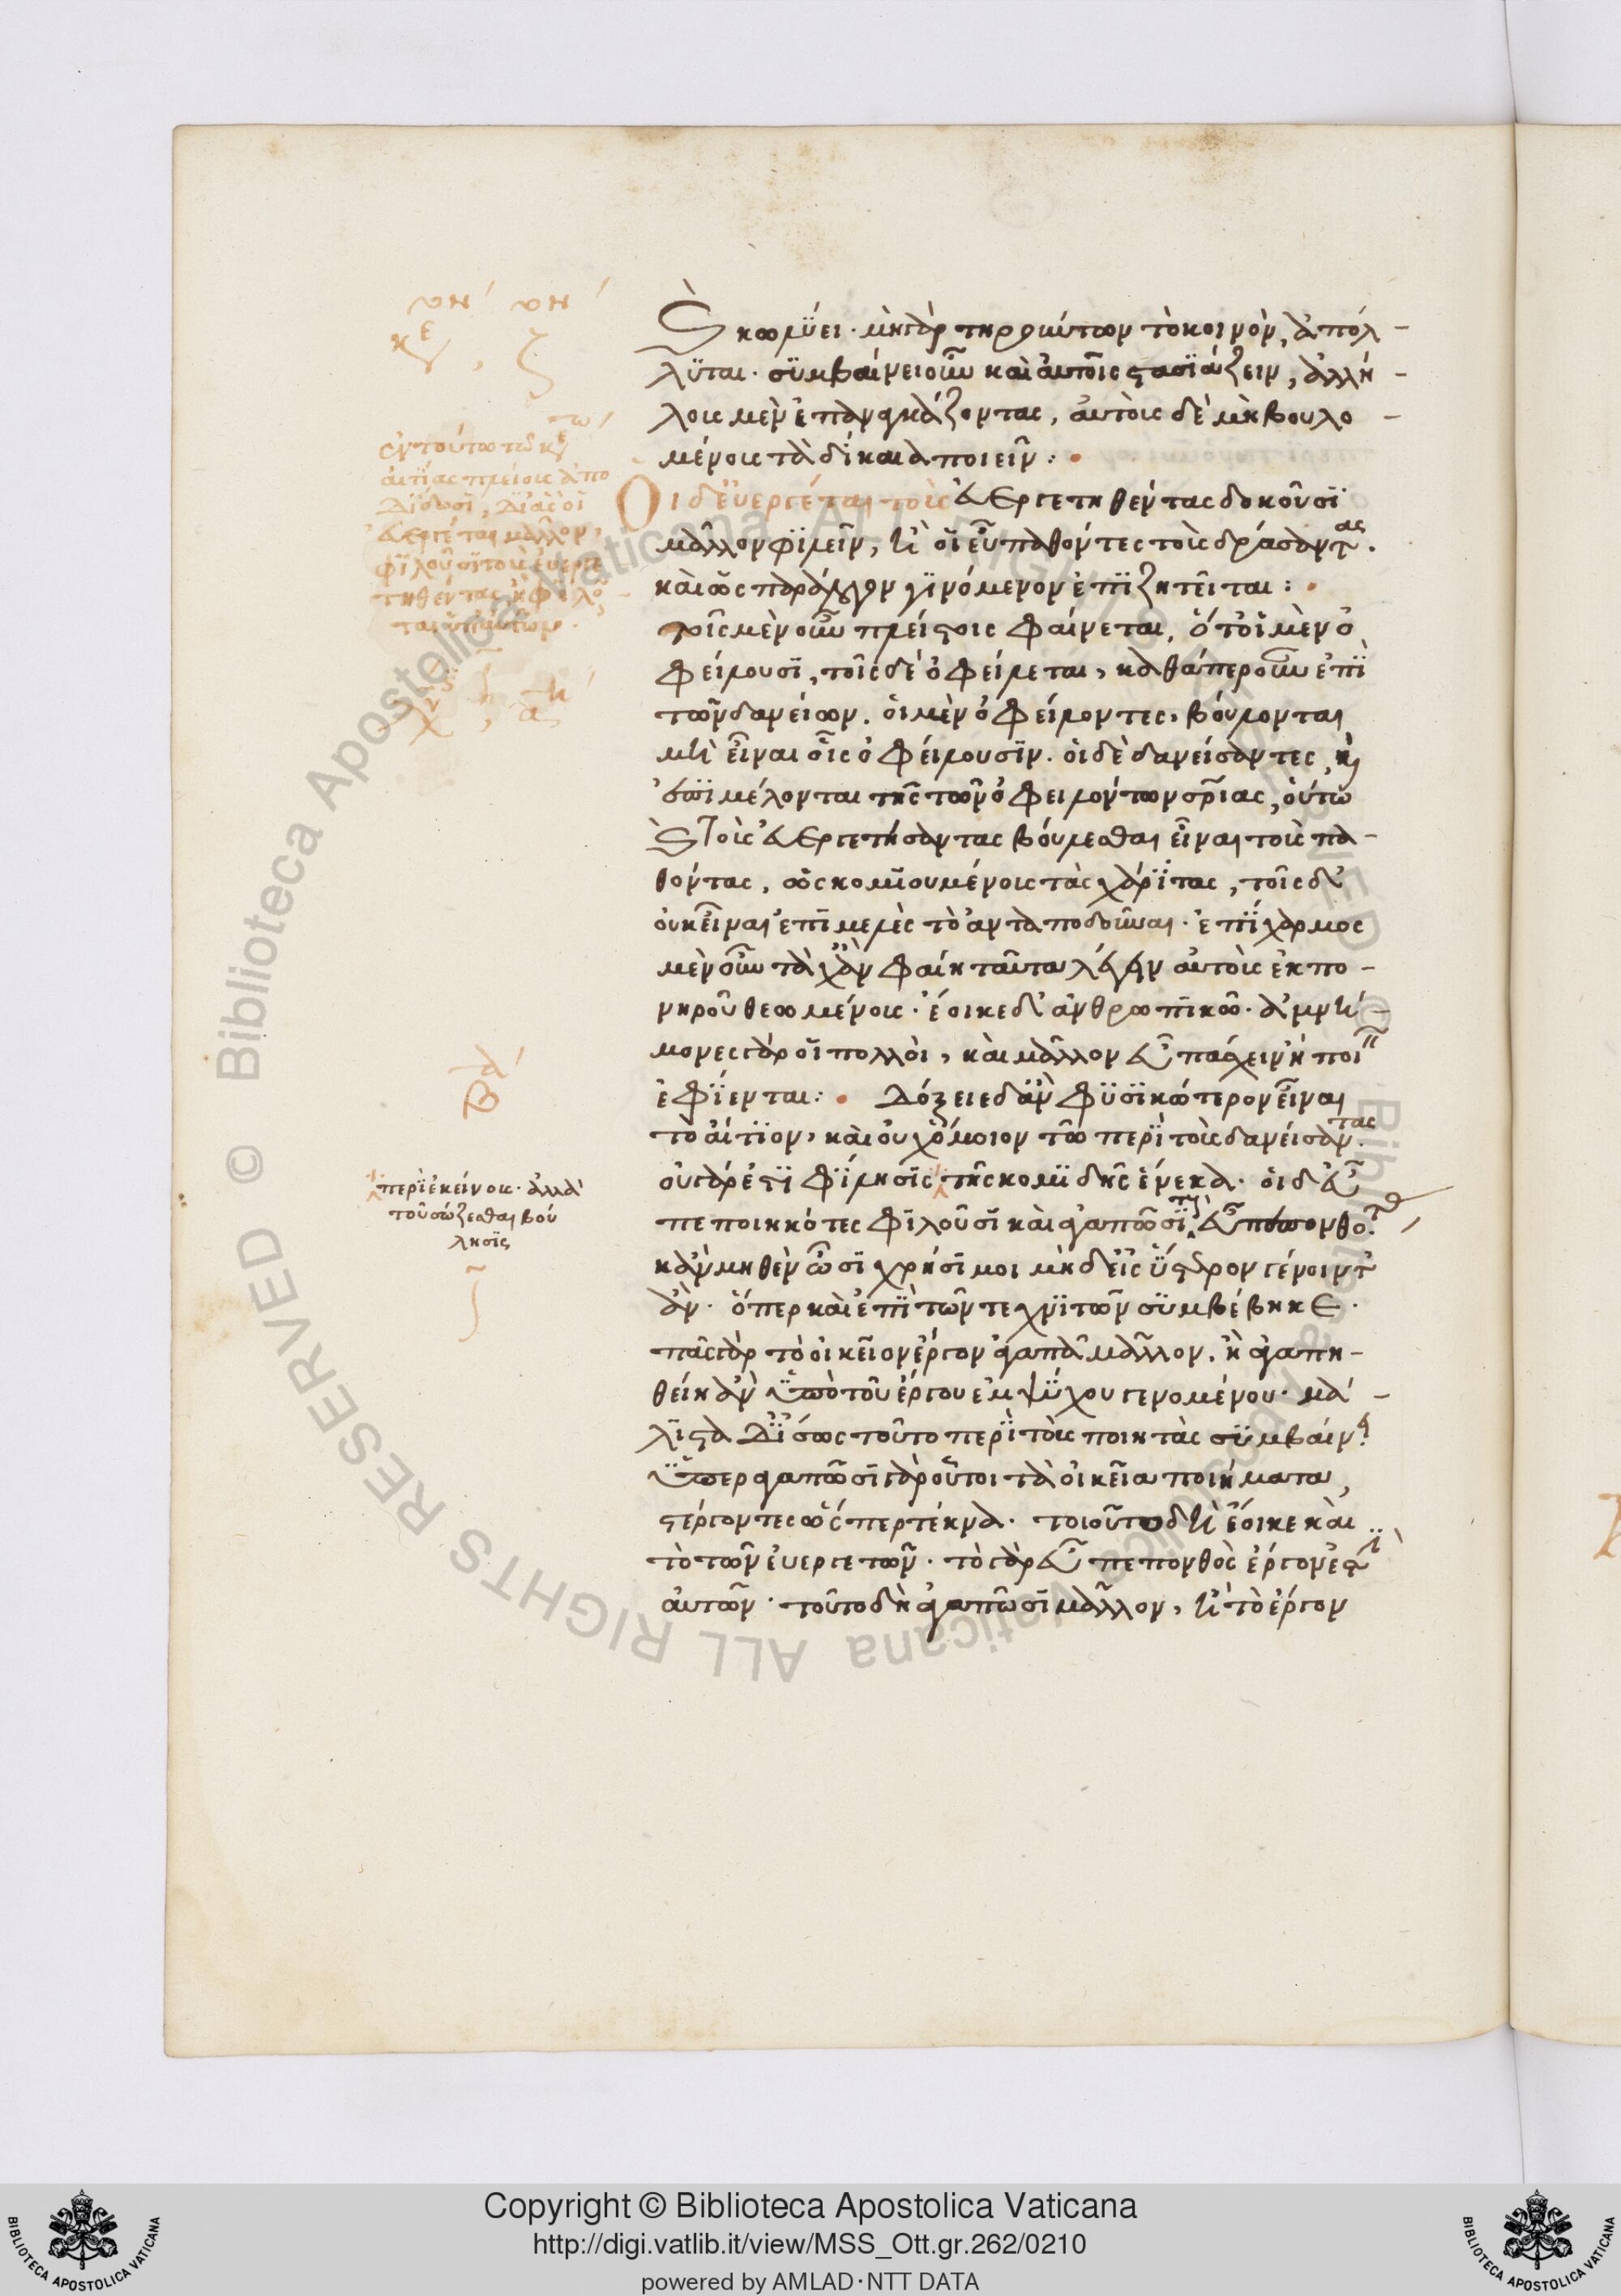 καὶ κωλύει· μὴ γὰρ τηρούντων τὸ κοινὸν, ἀπόλ-
λυται· συμβαίνει οὖν καὶ αὐτοῖς στασιάζειν, ἀλλή-
λους μὲν ἐπαναγκάζοντας, αὐτοὺς δὲ μὴ βουλο-
μένους τὰ δίκαια ποιεῖν:
Οἱ δ' εὐεργέται τοὺς εὐεργετηθέντας δοκοῦσι
μᾶλλον φιλεῖν, ἢ οἱ εὖ παθόντες τοὺς δράσαντας.
καὶ ὡς παράλογον γινόμενον ἐπιζητεῖται:
τοῖς μὲν οὖν πλείστοις φαίνεται, ὅτι οἱ μὲν ὀ
φείλουσι, τοῖς δὲ ὀφείλεται, καθάπερ οὖν ἐπὶ
τῶν δανείων. οἱ μὲν ὀφείλοντες, βούλονται
μὴ εἶναι οἷς ὀφείλουσιν. οἱ δὲ δανείσαντες, καὶ
ἐπιμέλονται τῆς τῶν ὀφειλόντων σωτηρίας, οὕτω
καὶ τοὺς εὐεργετήσαντας βούλεσθαι εἶναι τοὺς πα-
θόντας, ὡς κομιουμένους τὰς χάριτας, τοῖς δ'
οὐκ εἶναι ἐπιμελὲς τὸ ἀνταποδοῦναι· ἐπίχαρμος
μὲν οὖν τάχ' ἂν φαίη ταῦτα λέγειν αὐτοὺς ἐκ πο-
νηροῦ θεωμένους· ἔοικε δ' ἀνθρωπικῶ· ἀμνή-
μονες γὰρ οἱ πολλοὶ, καὶ μᾶλλον εὖ πάσχειν ἢ ποιεῖν
ἐφίενται: Δόξειε δ' ἂν φυσικώτερον εἶναι
τὸ αἴτιον, καὶ οὐχ ὅμοιον τῶ περὶ τοὺς δανείσαντας.
οὐ γάρ ἐστι φίλησις τῆς κομιδῆς ἕνεκα. οἱ δ' εὖ
πεποιηκότες φιλοῦσι καὶ ἀγαπῶσι τοὺς εὖ πεπονθότας,
κἂν μηθὲν ὦσι χρήσιμοι μηδ' εἰς ὕστερον γένοιντ'
ἄν. ὅπερ καὶ ἐπὶ τῶν τεχνιτῶν συμβέβηκε.
πᾶς γὰρ τὸ οἰκεῖον ἔργον ἀγαπᾶ μᾶλλον, ἢ ἀγαπη-
θείη ἂν ὑπὸ τοῦ ἔργου ἐμψύχου γενομένου· μά-
λιστα δ' ἴσως τοῦτο περὶ τοὺς ποιητὰς συμβαίνει.
ὑπεραγαπῶσι γὰρ οὗτοι τὰ οἰκεῖα ποιήματα,
στέργοντες ὥσπερ τέκνα. τοιοῦτο δὴ ἔοικε καὶ
τὸ τῶν εὐεργετῶν. τὸ γὰρ εὖ πεπονθὸς ἔργον ἐστὶ
αὐτῶν· τοῦτο δὴ ἀγαπῶσι μᾶλλον, ἢ τὸ ἔργον
κε, ζ
ἐν τούτω τῶ κε
αἰτίας πλείους ἀπο
δίδωσι, διὰ τί οἱ
εὐεργέται μᾶλλον
φιλοῦσι τοὺς εὐεργε
τηθέντας, ἢ φιλοῦν
ται ὑπ' αὐτῶν.
περὶ ἐκείνους· ἀλλὰ
τοῦ σώζεσθαι βού
λησις
Copyright © Biblioteca Apostolica Vaticana
http://digi.vatlib.it/view/MSS_Ott.gr.262/0210
powered by AMLAD·NTT DATA
BIBLIOTECA APOSTOLICA VATICANA
BIBLIOTECA APOSTOLICA VATICANA
© Biblioteca Apostolica Vaticana ALL RIGHTS RESERVED